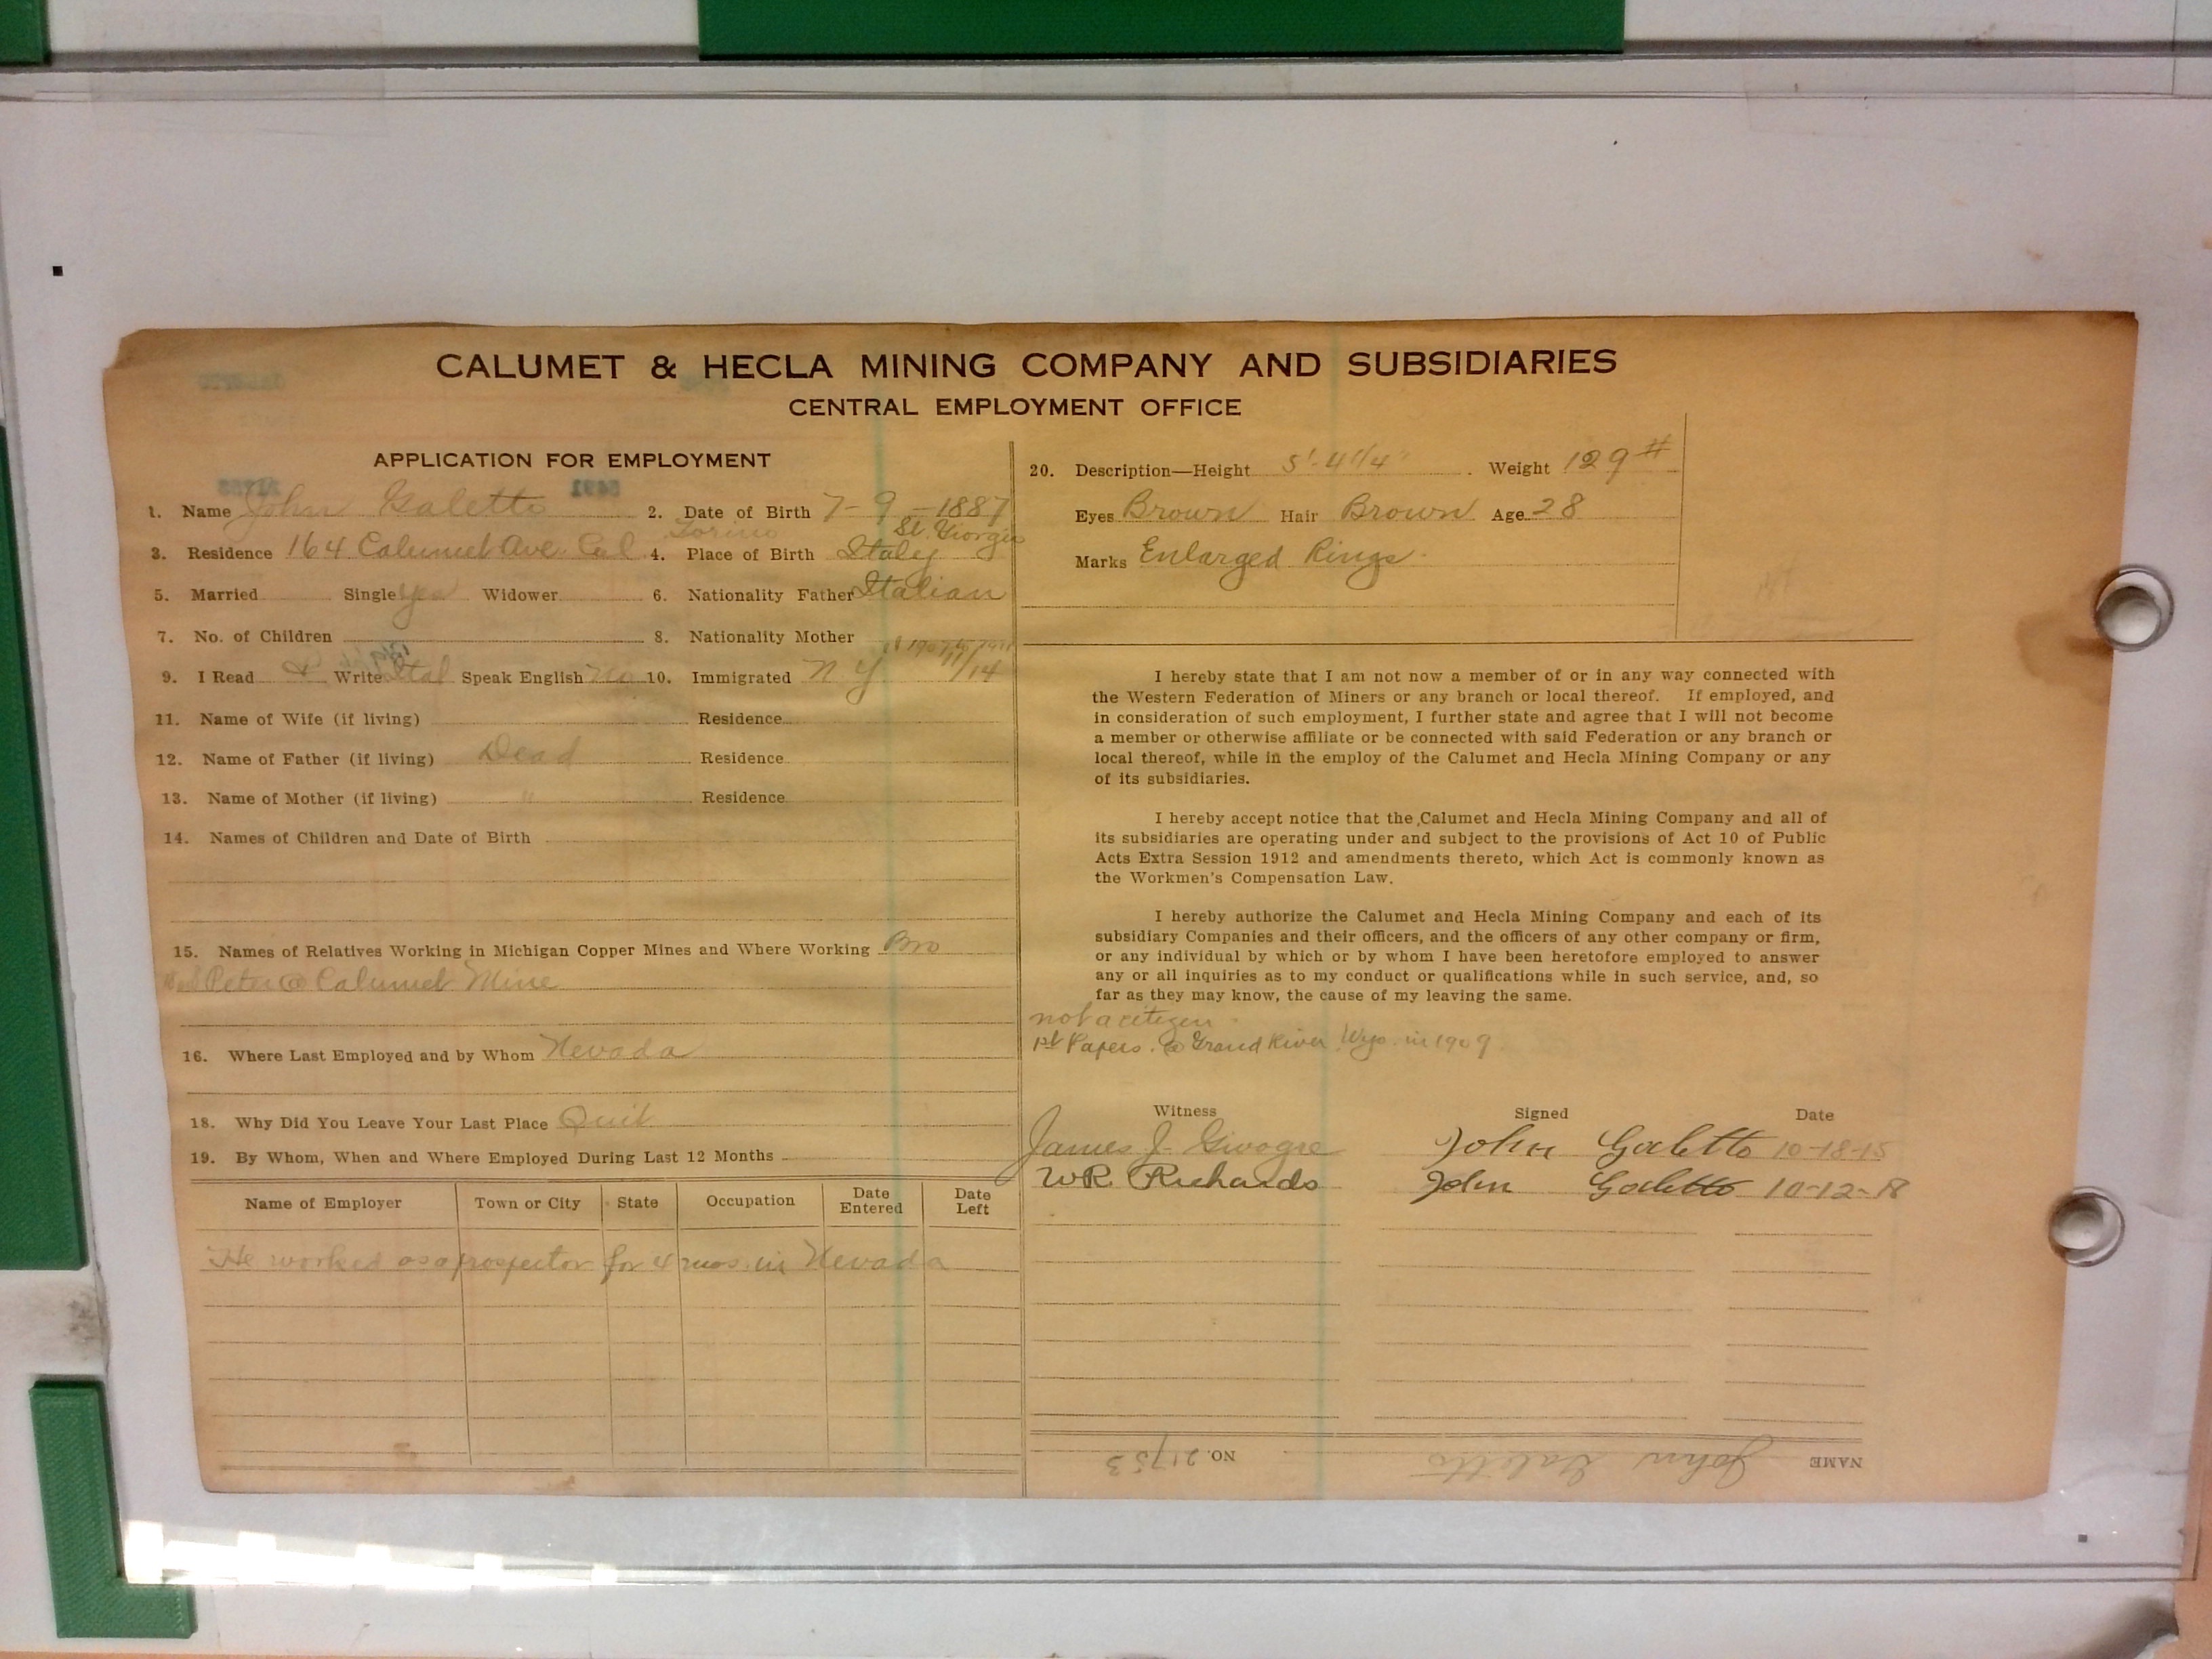 CALUMET & HECLA MINING COMPANY AND SUBSIDIARIES
CENTRAL EMPLOYMENT OFFICE
APPLICATION FOR EMPLOYMENT
1. Name John Galetto 2. Date of Birth 7-9-1887
Torino St. Giorgio
3. Residence 164 Calumet Ave. Cal 4. Place of Birth Italy
5. Married Single Yes Widower 6. Nationality Father Italian
7. No. of Children 8. Nationality Mother
9. I Read & Write Ital Speak English No 10. Immigrated N Y
11. Name of Wife (if living) Residence
12. Name of Father (if living) Dead Residence
13. Name of Mother (if living) " Residence
14. Names of Children and Date of Birth
15. Names of Relatives Working in Michigan Copper Mines and Where Working Bro
Peter @ Calumet Mine
16. Where Last Employed and by Whom Nevada
18. Why Did You Leave Your Last Place Quit
19. By Whom, When and Where Employed During Last 12 Months
Name of Employer Town or City State Occupation Date Entered Date Left
He worked as a prospector for 4 mos. in Nevada
20. Description—Height 5'-4 1/4" Weight 129 #
Eyes Brown Hair Brown Age 28
Marks Enlarged Rings
I hereby state that I am not now a member of or in any way connected with
the Western Federation of Miners or any branch or local thereof. If employed, and
in consideration of such employment, I further state and agree that I will not become
a member or otherwise affiliate or be connected with said Federation or any branch or
local thereof, while in the employ of the Calumet and Hecla Mining Company or any
of its subsidiaries.
I hereby accept notice that the Calumet and Hecla Mining Company and all of
its subsidiaries are operating under and subject to the provisions of Act 10 of Public
Acts Extra Session 1912 and amendments thereto, which Act is commonly known as
the Workmen's Compensation Law.
I hereby authorize the Calumet and Hecla Mining Company and each of its
subsidiary Companies and their officers, and the officers of any other company or firm,
or any individual by which or by whom I have been heretofore employed to answer
any or all inquiries as to my conduct or qualifications while in such service, and, so
far as they may know, the cause of my leaving the same.
not a citizen
1st Papers. @ Grand River Wyo. in 1909
Witness Signed Date
James J. John Galetto 10-18-15
WR Richards John Galetto 10-12-18
NAME John Galetto NO. 21753